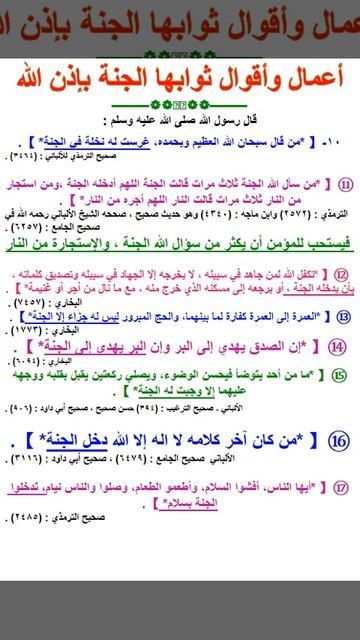 أعمال وأقوال ثوابها الجنة بإذن الله
أعمال وأقوال ثوابها الجنة بإذن الله
قال رسول الله صلى الله عليه وسلم :
١٠- 【 *من قال سبحان الله العظيم وبحمده، غرست له نخلة في الجنة* 】 .
صحيح الترمذي للألباني : (٣٤٦٤) .
⑪ 【 *من سأل الله الجنة ثلاث مرات قالت الجنة اللهم أدخله الجنة ،ومن استجار
من النار ثلاث مرات قالت النار اللهم أجره من النار* 】 .
الترمذي : (٢٥٧٢) وابن ماجه : (٤٣٤٠) وهو حديث صحيح ، صححه الشيخ الألباني رحمه الله في
صحيح الجامع : (٦٢٧٥) .
فيستحب للمؤمن أن يكثر من سؤال الله الجنة ، والإستجارة من النار
⑫ 【 *تكفل الله لمن جاهد في سبيله ، لا يخرجه إلا الجهاد في سبيله وتصديق كلماته ،
بأن يدخله الجنة ، أو يرجعه إلى مسكنه الذي خرج منه ، مع ما نال من أجر أو غنيمة* 】 .
البخاري : (٧٤٥٧) .
⑬ 【 *العمرة إلى العمرة كفارة لما بينهما، والحج المبرور ليس له جزاء إلا الجنة* 】 .
البخاري : (١٧٧٣) .
⑭ 【 *إن الصدق يهدي إلى البر وإن البر يهدي إلى الجنة* 】 .
البخاري : (٦٠٩٤) .
⑮ 【 *ما من أحد يتوضأ فيحسن الوضوء، ويصلي ركعتين يقبل بقلبه ووجهه
عليهما إلا وجبت له الجنة* 】 .
الألباني ـ صحيح الترغيب : (٣٩٤) حسن صحيح ، صحيح أبي داود : (٩٠٦) .
⑯ 【 *من كان آخر كلامه لا اله إلا الله دخل الجنة* 】 .
الألباني صحيح الجامع : (٦٤٧٩) ، صحيح أبي داود : (٣١١٦) .
⑰ 【 *أيها الناس، أفشوا السلام، وأطعموا الطعام، وصلوا والناس نيام، تدخلوا
الجنة بسلام* 】 .
صحيح الترمذي : (٢٤٨٥) .